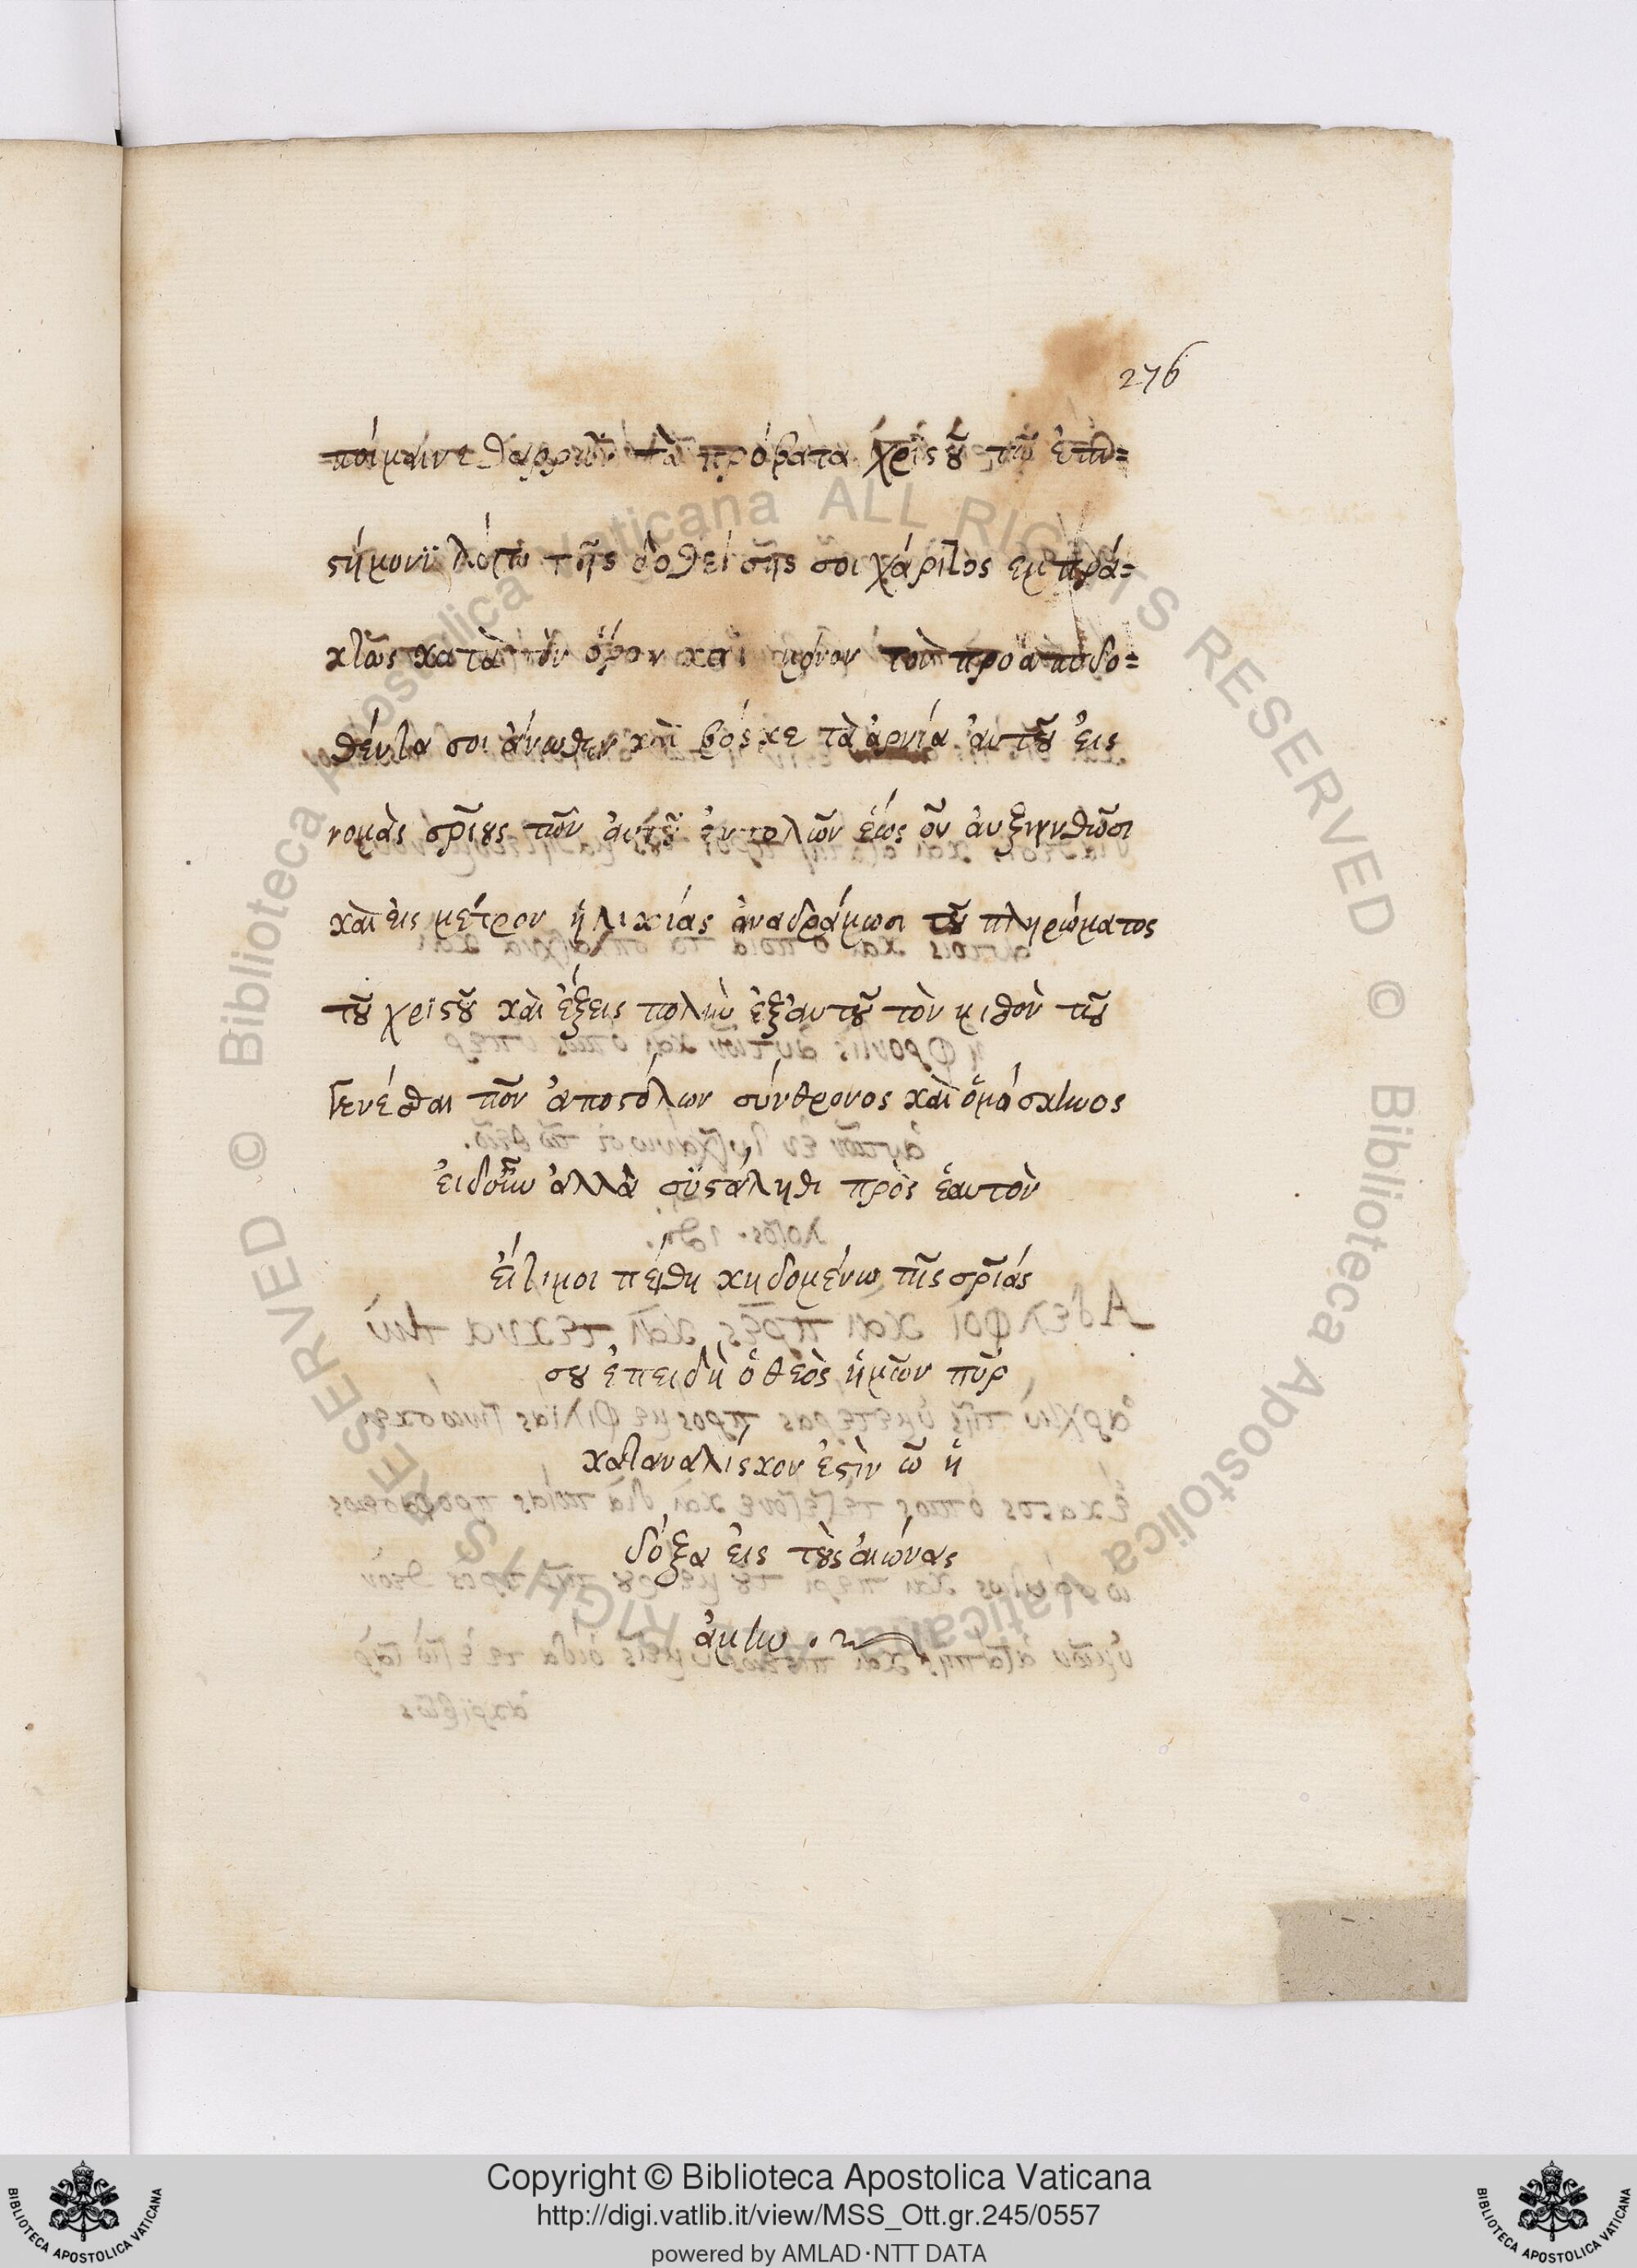 276
ποίμαινε θαρρῶν τὰ πρόβατα χριστοῦ τῶ ἐπι=
στήμονι λόγω τῆς δοθείσης σοι χάριτος ἐμπρά=
κτως κατὰ τὸν ὅρον καὶ μόνον τὸν προαποδο=
θέντα σοι ἄνωθεν καὶ βόσκε τὰ ἀρνία αὐτοῦ εἰς
νομὰς σρ̅ιους τῶν αὐτοῦ ἐντολῶν ἕως οὗ αὐξηνθῶσι
καὶ εἰς μέτρον ἡλικίας ἀναδράμωσι τοῦ πληρώματος
τοῦ χριστοῦ καὶ ἕξεις πολὺν ἐξ αὐτοῦ τὸν μισθὸν τοῦ
γενέσθαι τῶν ἀποστόλων σύνθρονος καὶ ὁμόσκηνος
εἰ δ' οὖν ἀλλὰ συστάληθι πρὸς ἑαυτὸν
εἴ τι μοι πείθη κηδομένω τῆς σρ̅ιάς
σου ἐπειδὴ ὁ θεὸς ἡμῶν πῦρ
καταναλίσκον ἐστὶν ὧ ἡ
δόξα εἰς τοὺς αἰώνας
ἀμήν.
Copyright © Biblioteca Apostolica Vaticana
http://digi.vatlib.it/view/MSS_Ott.gr.245/0557
powered by AMLAD·NTT DATA
BIBLIOTECA APOSTOLICA VATICANA
BIBLIOTECA APOSTOLICA VATICANA
© Biblioteca Apostolica Vaticana ALL RIGHTS RESERVED
© Biblioteca Apostolica Vaticana ALL RIGHTS RESERVED